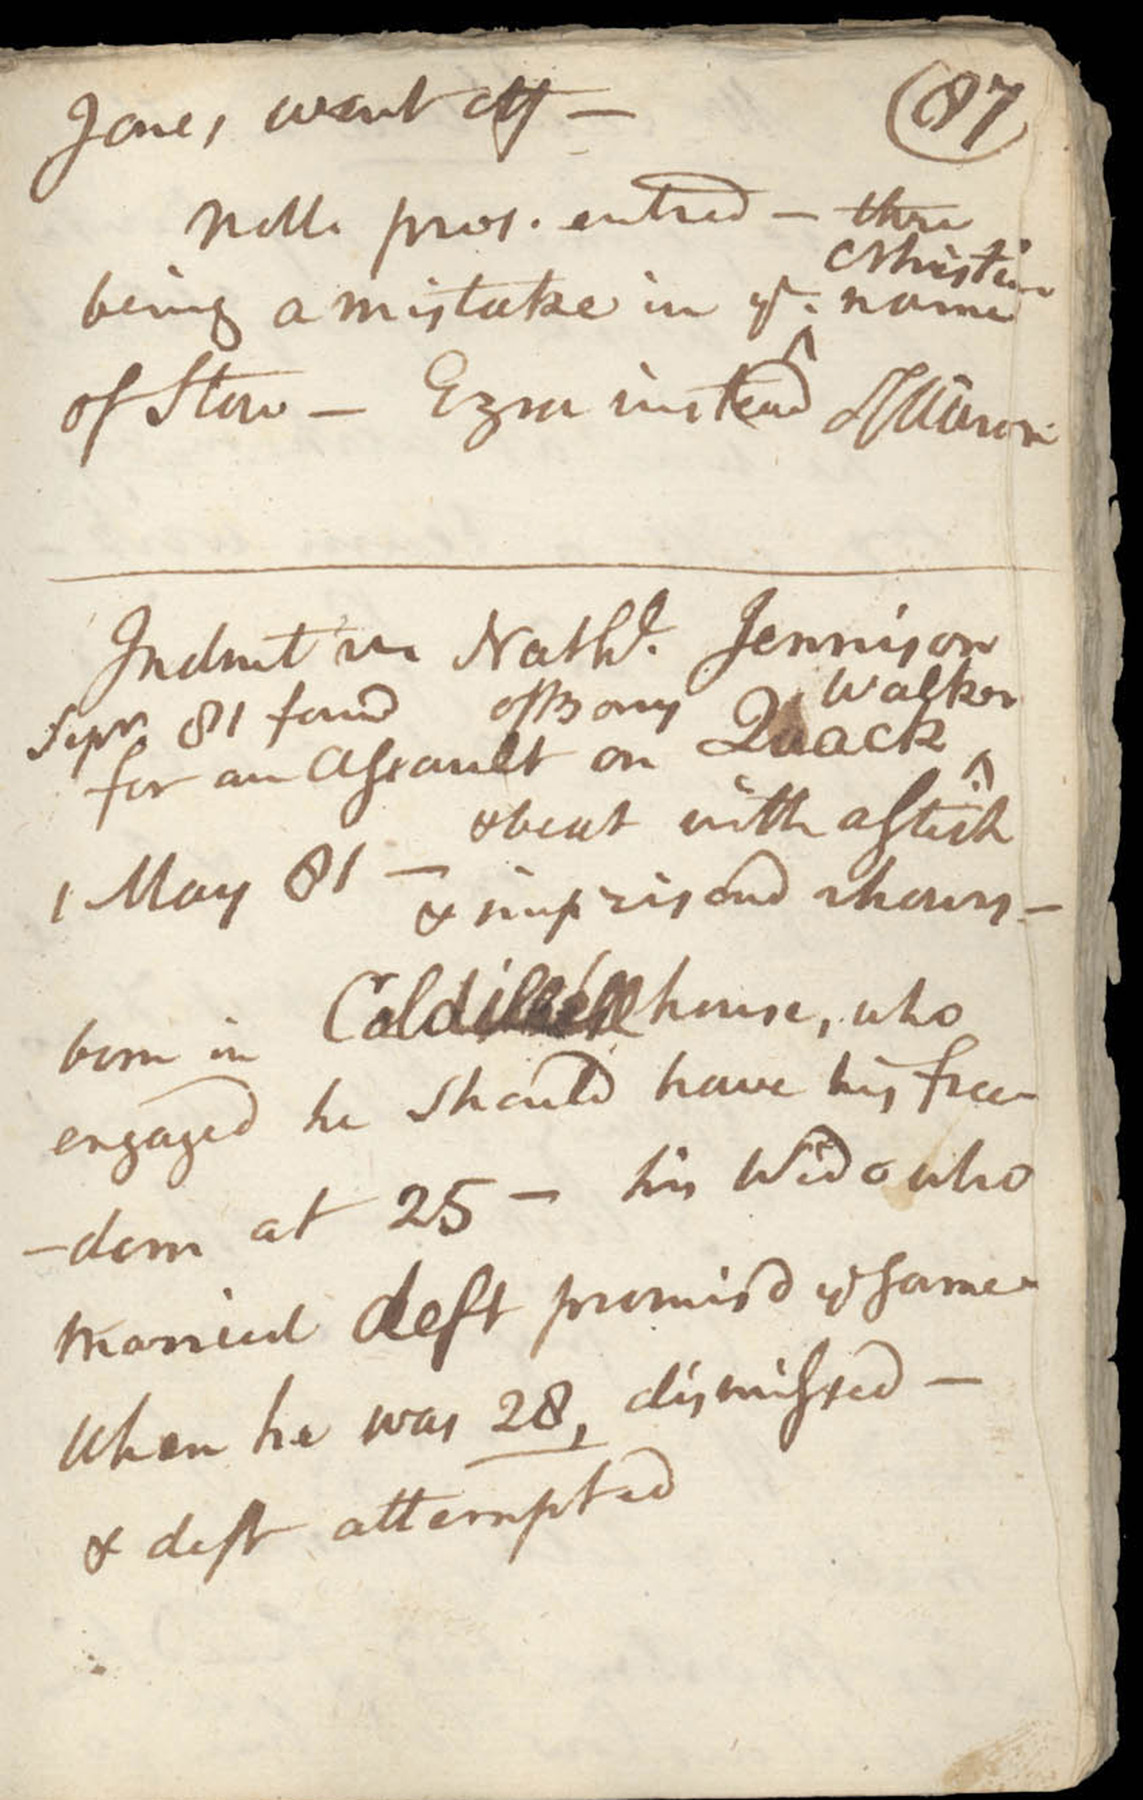 Jones went off —
(87)
Nolle pros. entred — there
Christian
being a mistake in ye. name
of Stow — Ezra instead
Indmt vs Nathl. Jennison
Sepr. 81 found of Barry Walker
for an assault on Quack ^
& beat with a stick
1 May 81 —
& imprisond 2 hours —
born in Caldwell house, who
engaged he should have his free-
-dom at 25 — his Wido who
married deft promisd ye same
when he was 28, dismissed —
& deft attempted